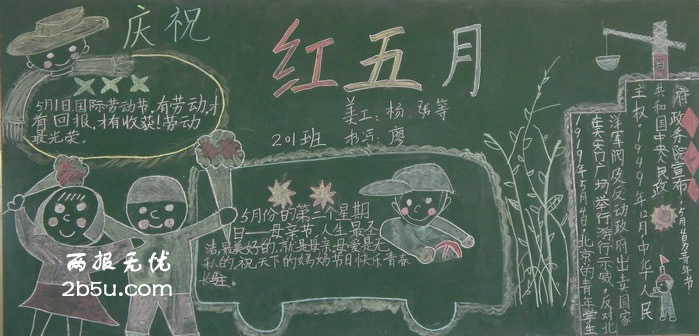 庆祝
红五月
美工:杨、张等
201班 书写:廖
5月1日,国际劳动节,有劳动,才
有回报,才有收获!劳动
最光荣。
5月份的第二个星期
日——母亲节,人生最圣
洁,最美好的,就是母亲,母爱是无
私的,祝天下的妈妈节日快乐青春
长驻。
1919年5月4日,北京的青年学生
在天安门广场举行游行示威,反对北
洋军阀及反动政府出卖国家
主权,1949年12月中华人民
共和国中央人民政
府政务院宣布,5月4日为青年节
两报无忧
2b5u.com